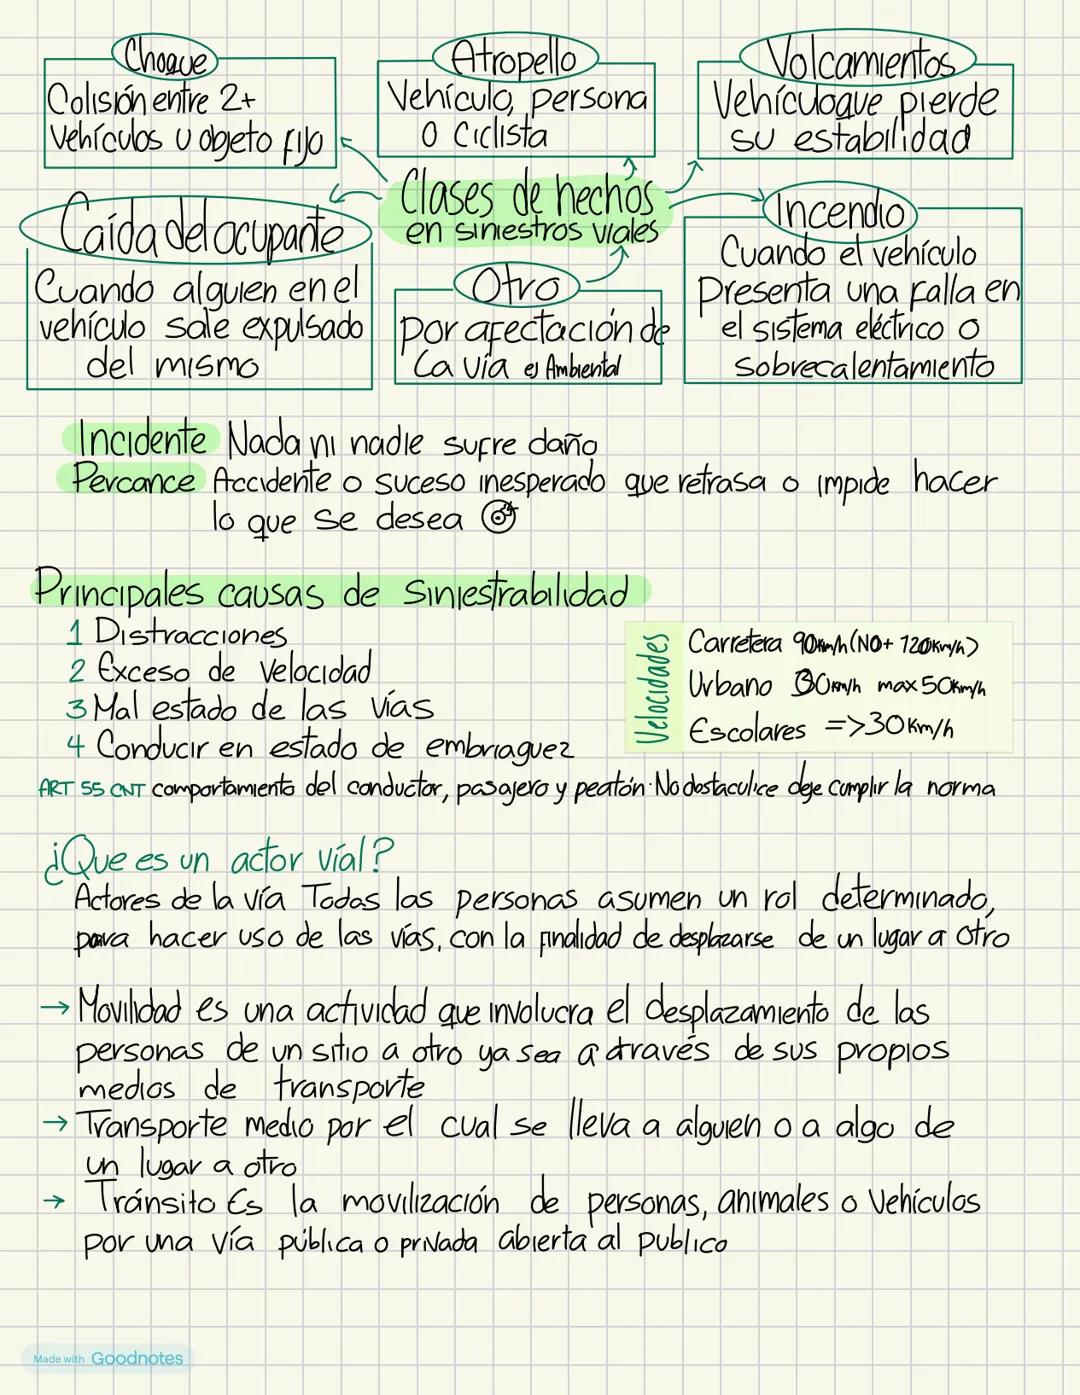 Choque
Colisión entre 2+
Vehículos u objeto fijo
Atropello
Vehículo, persona
o Ciclista
Volcamientos
Vehículo que pierde
su estabilidad
Clases de hechos
en siniestros viales
Caída del ocupante
Cuando alguien en el
vehículo sale expulsado
del mismo
Otro
Por afectación de
la vía ej Ambiental
Incendio
Cuando el vehículo
Presenta una falla en
el sistema eléctrico o
Sobrecalentamiento
Incidente Nada ni nadie sufre daño
Percance Accidente o suceso inesperado que retrasa o impide hacer
lo que se desea
Principales causas de Siniestrabilidad
1 Distracciones
2 Exceso de Velocidad
3 Mal estado de las vías
4 Conducir en estado de embriaguez
Velocidades
Carretera 90km/h (NO+ 120km/h)
Urbano 30km/h max 50km/h
Escolares => 30 Km/h
ART 55 CNT comportamiento del conductor, pasajero y peatón. No obstaculice deje cumplir la norma
¿Que es un actor víal?
Actores de la vía Todas las personas asumen un rol determinado,
para hacer uso de las vías, con la finalidad de desplazarse de un lugar a otro
→ Movilidad es una actividad que involucra el desplazamiento de las
personas de un sitio a otro ya sea a través de sus propios
medios de transporte
→ Transporte medio por el cual se lleva a alguien o a algo de
un lugar a otro
→ Tránsito Es la movilización de personas, animales o Vehículos
por una vía pública o privada abierta al publico
Made with Goodnotes